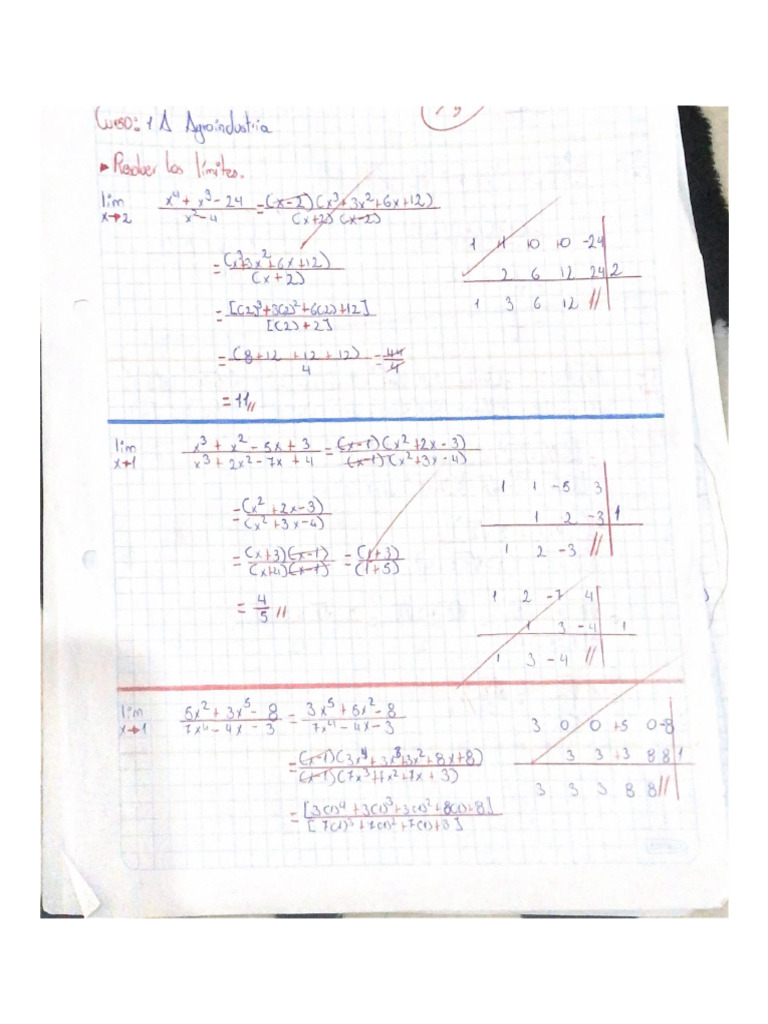 Curso: 1 A Agroindustria
▸ Resolver los límites.
lim x→2 (x⁴ + x³ - 24)/(x² - 4) = (x-2)(x³+3x²+6x+12)/(x+2)(x-2)
= (x³+3x²+6x+12)/(x+2)
= [(2)³+3(2)²+6(2)+12]/[(2)+2]
= (8+12+12+12)/4 = 44/4
= 11//
1 1 0 0 -24
2 6 12 24 | 2
1 3 6 12 //
lim x→1 (x³ + x² - 5x + 3)/(x³ + 2x² - 7x + 4) = (x-1)(x²+2x-3)/(x-1)(x²+3x-4)
= (x²+2x-3)/(x²+3x-4)
= (x+3)(x-1)/(x+4)(x-1) = (1+3)/(1+5)
= 4/5 //
1 1 -5 3
1 2 -3 | 1
1 2 -3 //
1 2 -7 4
1 3 -4 | 1
1 3 -4 //
lim x→1 (5x² + 3x⁵ - 8)/(7x⁴ - 4x - 3) = (3x⁵ + 5x² - 8)/(7x⁴ - 4x - 3)
= (x-1)(3x⁴+3x³+3x²+8x+8)/(x-1)(7x³+7x²+7x+3)
= [3(1)⁴+3(1)³+3(1)²+8(1)+8]/[7(1)³+7(1)²+7(1)+3]
3 0 0 +5 0 -8
3 3 +3 8 8 | 1
3 3 3 8 8 //